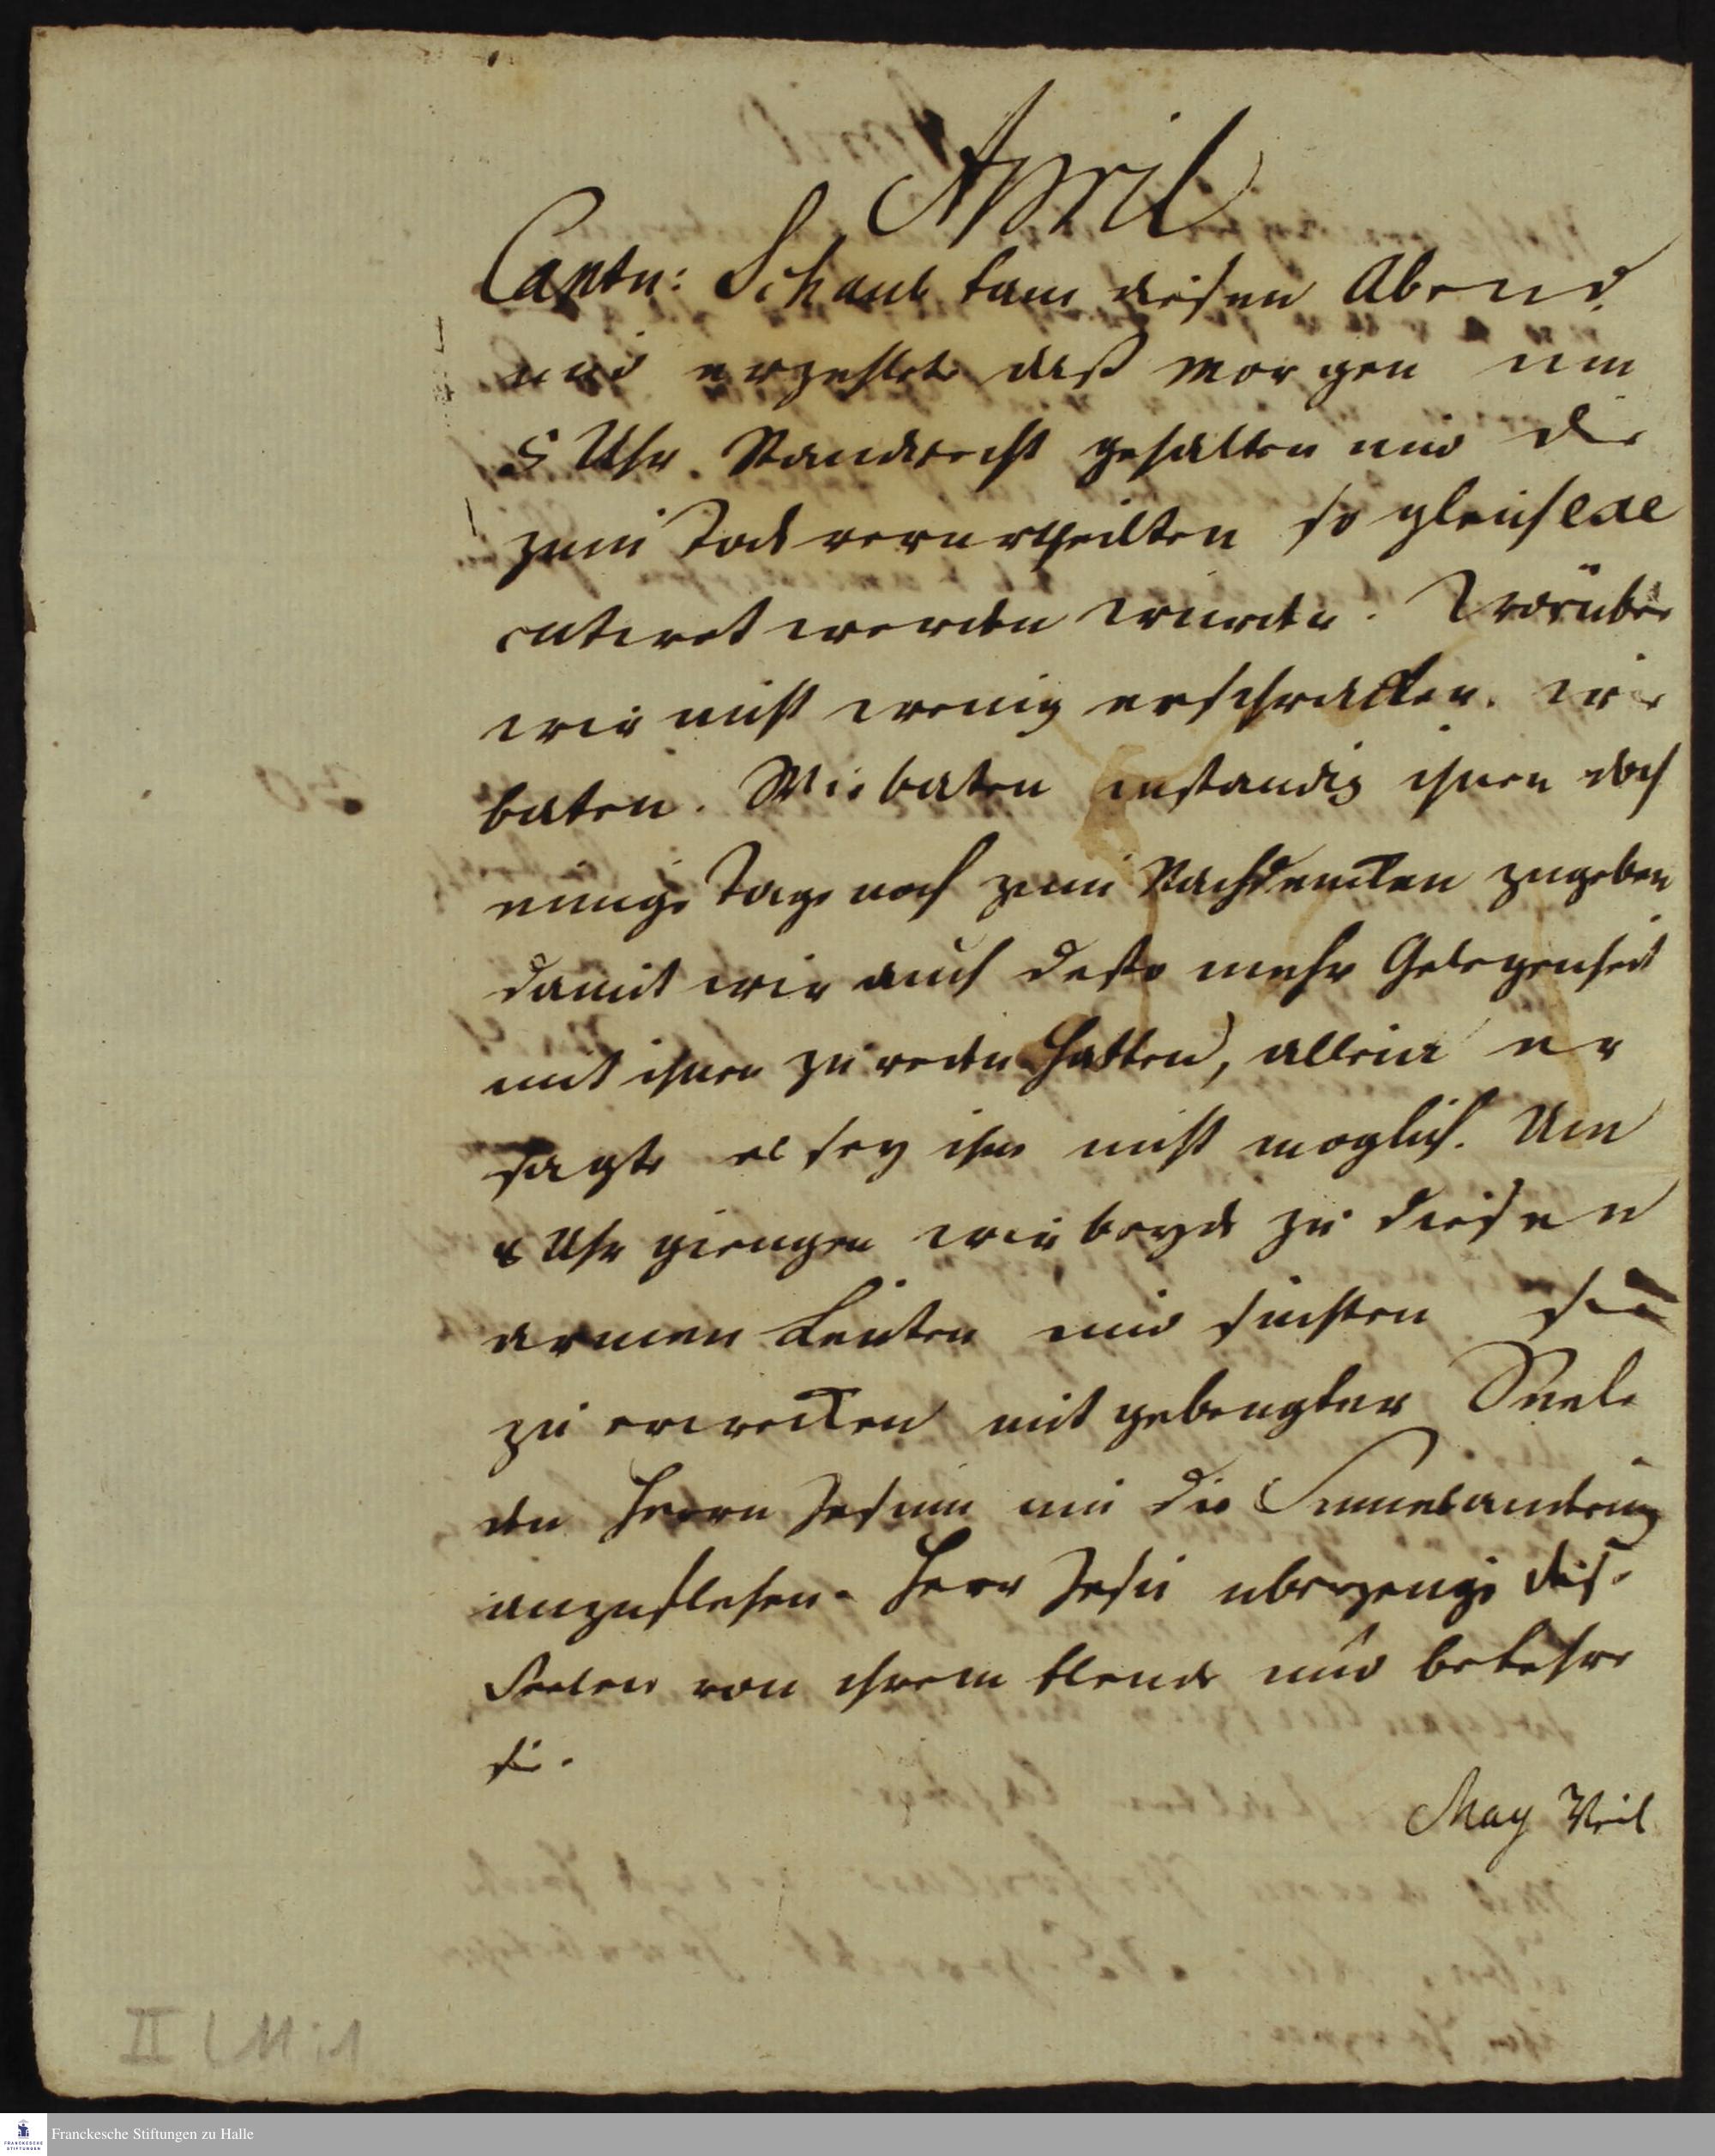 April
Captn: Schaub kam diesen Abend
und erzehlete daß Morgen um
5 Uhr Standrecht gehalten und die
zum Tod verurtheilten so gleich exe
cutiret werden würden. Worüber
wir nicht wenig erschracken. wir
baten. Wir baten instandig ihnen doch
einige Tage noch zum Nachdencken zugeben
damit wir auch desto mehr Gelegenheit
mit ihnen zu reden hatten, allein er
sagte es sey ihm nicht moglich. Um
Uhr giengen wir beyde zu diesen
armen Leuten und suchten sie
zu erwecken mit gebeugter Seele
den Herrn Jesum um die Sinnesanderung
anzuflehen. Herr Jesu uberzeuge diese
Seelen von ihrem Elende und bekehre
sie.
May
II L 11 i 1
Franckesche Stiftungen zu Halle